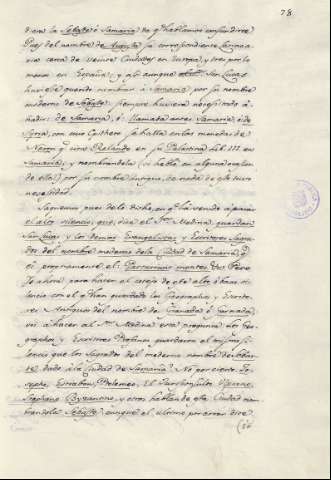 78
diera la Sebaste ó Samaria de q.e hablamos confundirse
Pues del nombre de Augusta su correspondiente Latino ha
vía cerca de veinte Ciudades en Europa, y tres por lo
menos en España; y assi aunque San Lucas
huviesse querido nombrar à Samaria por su nombre
moderno de Sebaste siempre huviera necesitado à
ñadir: de Samaria, ó llamada antes Samaria, ó de
Syria, con cuyo se halla en las monedas de
Neron q.e une Relando en su Palestina Lib. III en
Samaria; y nombrandola (si habla en alguna ocasion
de ella) por su nombre antiguo, de nada de esto tuvo
necesidad.
Saquemos pues de lo dicho, en q.e ha venido à parar
el alto silencio, que, dice el S.r Medina, guardan
San Lucas y los demas Evangelistas y Escritores Sagra
dos del nombre moderno de la Ciudad de Samaria, ó
si propriamente el: Parturient montes &c. Pero
Yo ahora para hacer el cotejo de este alto silen
cio con el q.e han guardado los Geographos y Escrito
res Antiguos del nombre de Granada ó Garnada,
voi à hacer al S.r Medina esta pregunta: los Geo
graphos y Escritores Profanos guardaron el mismo si
lencio que los Sagrados del moderno nombre de Sebas
te dado à la Ciudad de Samaria? No por cierto. Jo
sepho, Estrabon, Ptolemeo, El Jurisconsulto Ulpiano,
Stephano Byzantino, y otros hablan de esta Ciudad nom
brandola Sebaste, aunque el ultimo por error dice